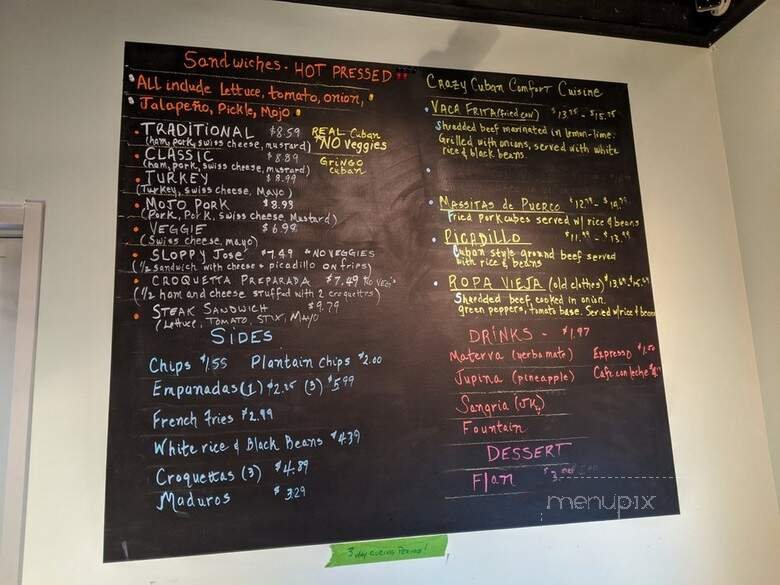 Sandwiches - HOT PRESSED
All include lettuce, tomato, onion,
Jalapeño, Pickle, Mojo
TRADITIONAL $8.59 REAL Cuban
(ham, pork, swiss cheese, mustard) *NO Veggies
CLASSIC $8.89 GRINGO
(ham, pork, swiss cheese, mustard) cuban
TURKEY $8.99
(Turkey, swiss cheese, Mayo)
MOJO PORK $8.93
(Pork, Pork, swiss cheese, Mustard)
VEGGIE $6.99
(Swiss cheese, mayo)
SLOPPY Jose' $7.49 *NO VEGGIES
(1/2 sandwich with cheese + picadillo ON fries)
CROQUETA PREPARADA $7.49 NO VEG's
(1/2 ham and cheese stuffed with 2 croquettes)
STEAK SANDWICH $9.79
(Lettuce, TOMATO, STIX, MAYO
SIDES
Chips $1.55 Plantain chips $2.00
Empanadas (1) $2.25 (3) $5.99
French Fries $2.99
White rice & Black Beans $4.39
Croquettas (3) $4.89
Maduros $3.29
Crazy Cuban Comfort Cuisine
VACA FRITA (fried cow)
Shredded beef marinated in lemon-lime.
Grilled with onions, served with white
rice & black beans
MASSITAS de PUERCO
Fried pork cubes served w/ rice & beans
PICADILLO
Cuban style ground beef served
with rice & beans
ROPA VIEJA (old clothes)
Shredded beef cooked in onion,
green peppers, tomato base. Served w/ rice & beans
DRINKS - $1.97
Materva (yerba mate) Espresso $1.50
Jupina (pineapple) Cafe con leche
Sangria (JK)
Fountain
DESSERT
Flan
menupix